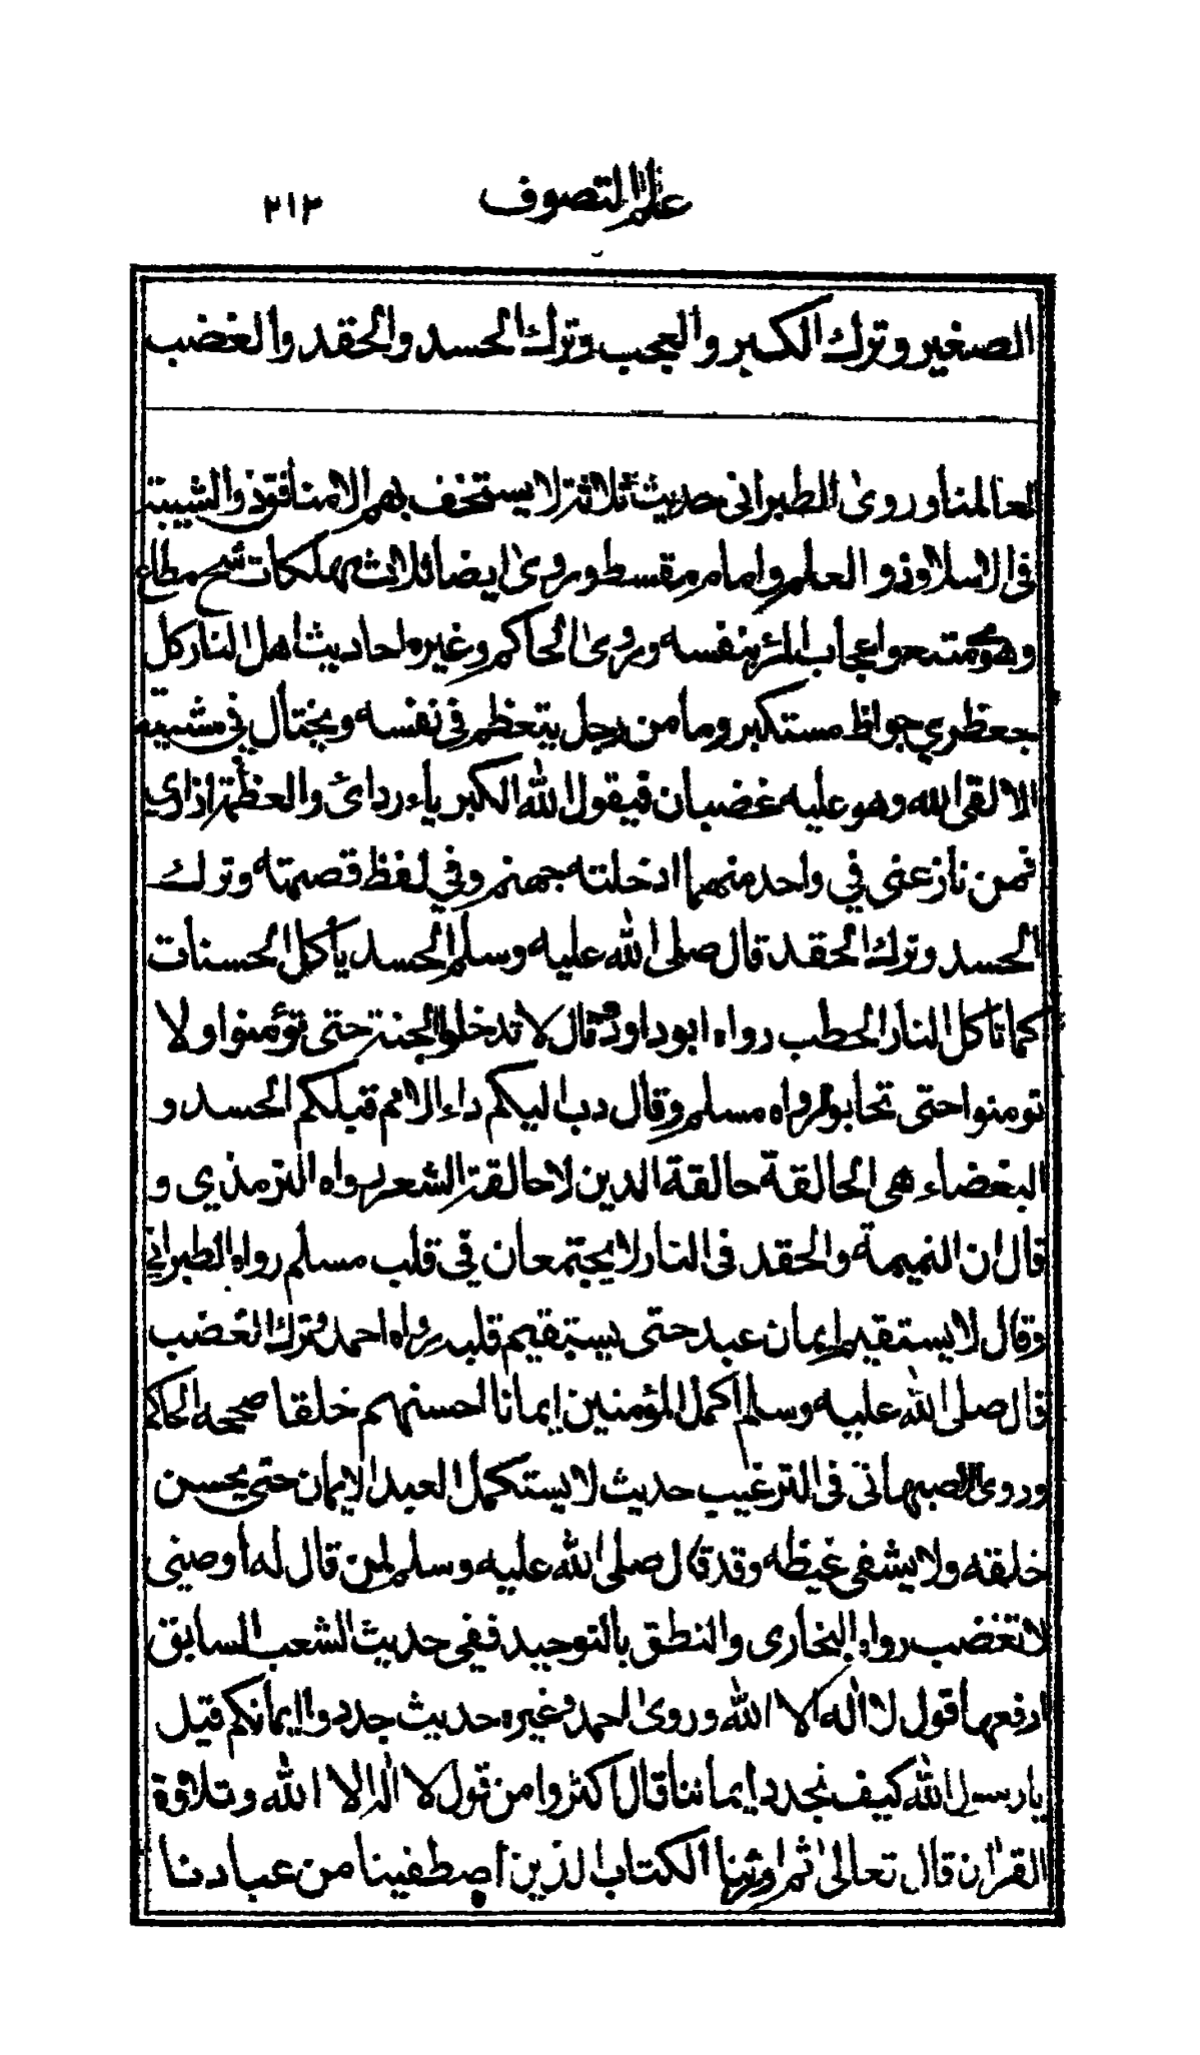 علم التصوف ٢١٣
الصغير وترك الكبر والعجب وترك الحسد والحقد والغضب
لعالمنا وروى الطبراني حديث ثلاثة لا يستخف بهم الا منافق ذو الشيبة
في الاسلام وذو العلم وامام مقسط وروى ايضا ثلاث مهلكات شح مطاع
وهوى متبع واعجاب المرء بنفسه وروى الحاكم وغيره احاديث اهل النار كل
جعظري جواظ مستكبر وما من رجل يتعظم في نفسه ويختال في مشيته
الا لقى الله وهو عليه غضبان فيقول الله الكبرياء ردائ والعظمة ازاري
فمن نازعني في واحد منهما ادخلته جهنم وفي لفظ قصمته وترك
الحسد وترك الحقد قال صلى الله عليه وسلم الحسد يأكل الحسنات
كما تاكل النار الحطب رواه ابو داود وقال لا تدخلوا الجنة حتى تؤمنوا ولا
تومنوا حتى تحابوا رواه مسلم وقال دب اليكم داء الامم قبلكم الحسد و
البغضاء هي الحالقة حالقة الدين لا حالقة الشعر رواه الترمذي و
قال ان النميمة والحقد في النار لا يجتمعان في قلب مسلم رواه الطبراني
وقال لا يستقيم ايمان عبد حتى يستقيم قلبه رواه احمد وترك الغضب
قال صلى الله عليه وسلم اكمل المؤمنين إيمانا احسنهم خلقا صححه الحاكم
وروى الاصبهاني في الترغيب حديث لا يستكمل العبد الايمان حتى يحسن
خلقه ولا يشفى غيظه وقد قال صلى الله عليه وسلم لمن قال له أوصنى
لا تغضب رواه البخارى والنطق بالتوحيد ففي حديث الشعب السابق
ارفعها قول لا اله الا الله وروى احمد وغيره حديث جددوا إيمانكم قيل
يا رسول الله كيف نجدد إيماننا قال اكثروا من قول لا اله الا الله وتلاوة
القران قال تعالى ثم اورثنا الكتاب الذين اصطفينا من عبادنا